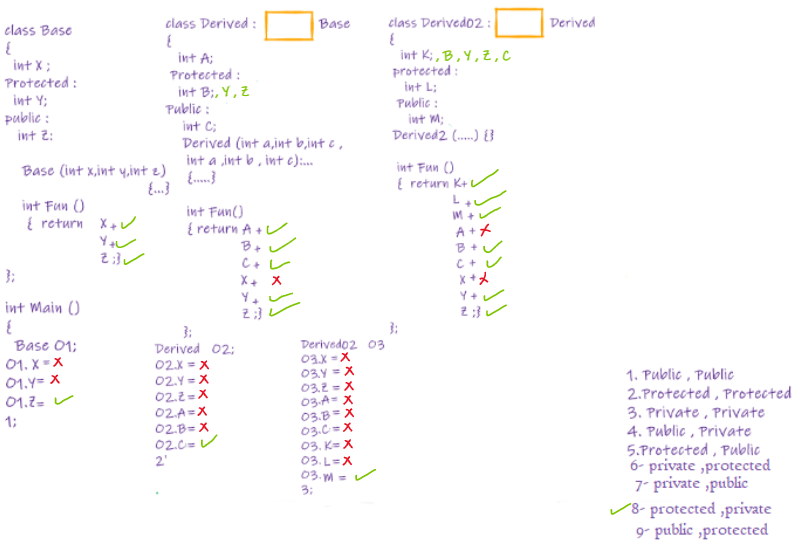 class Base
{
int X ;
Protected :
int Y;
public :
int Z:
Base (int x,int y,int z)
{...}
int Fun ()
{ return X+
Y+
Z ;}
};
int Main ()
{
Base O1;
O1. X =
O1.Y=
O1.Z=
1;
class Derived : Base
{
int A;
Protected :
int B;, Y, Z
Public :
int C;
Derived (int a,int b,int c ,
int a ,int b , int c):...
{.....}
int Fun()
{ return A +
B +
C +
X +
Y +
Z ;}
};
Derived O2;
O2.X =
O2.Y =
O2.Z =
O2.A=
O2.B=
O2.C=
2'
class Derived02 : Derived
{
int K;, B, Y, Z, C
protected :
int L;
Public :
int M;
Derived2 (.....) {}
int Fun ()
{ return K+
L +
M +
A +
B +
C +
X +
Y +
Z ;}
};
Derived02 O3
O3.X =
O3.Y =
O3.Z =
O3.A=
O3.B=
O3.C=
O3. K=
O3. L=
O3.M =
3;
1. Public , Public
2.Protected , Protected
3. Private , Private
4. Public , Private
5.Protected , Public
6- private ,protected
7- private ,public
8- protected ,private
9- public ,protected